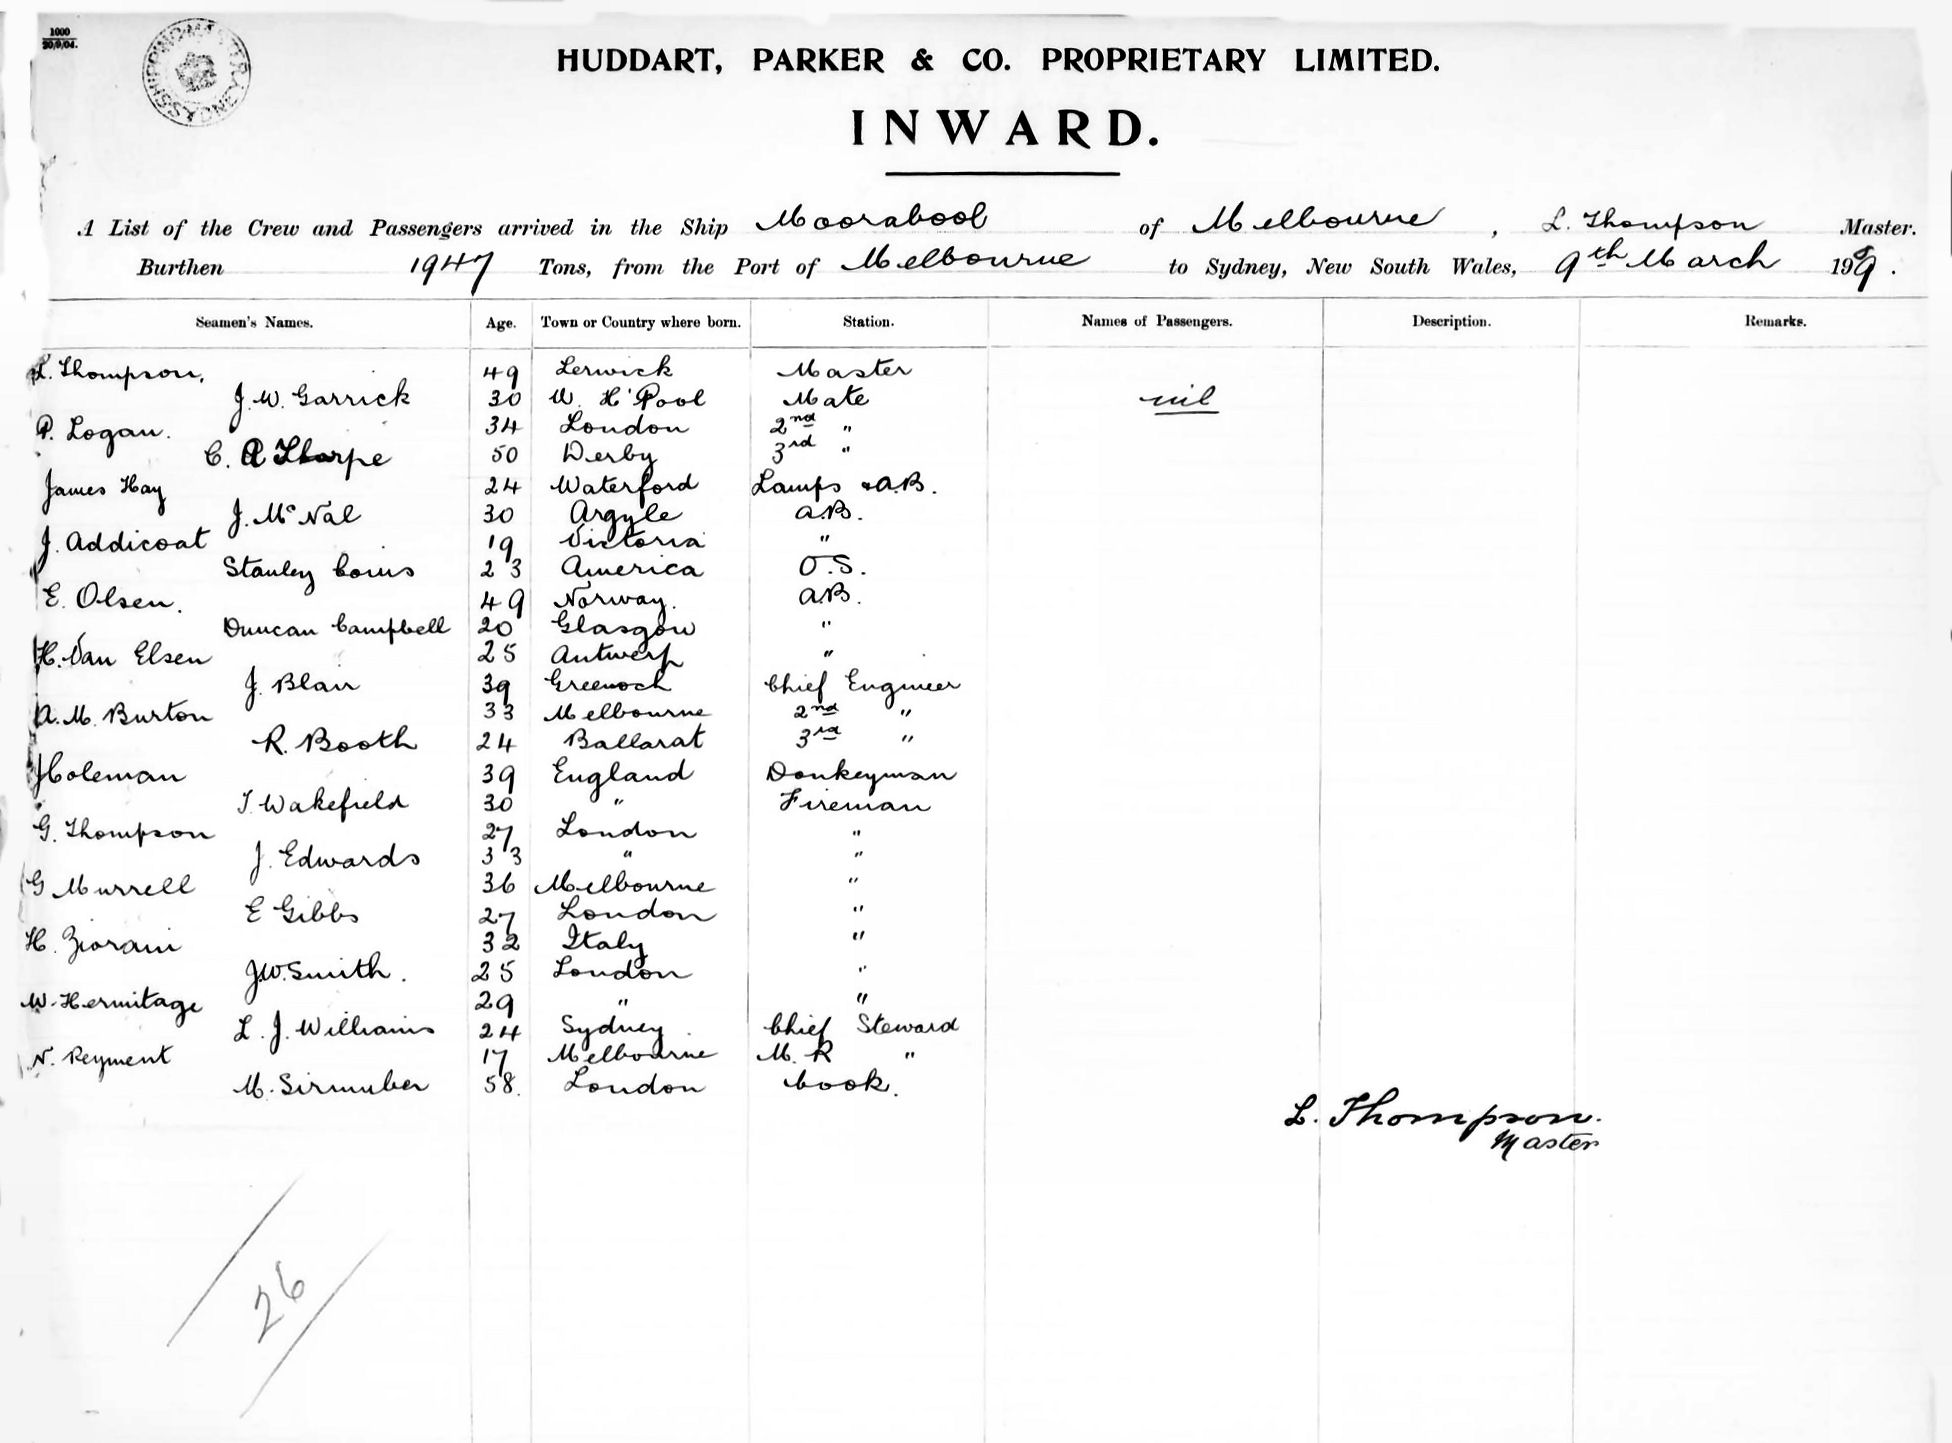 1000
20/9/04.
SHIPPING MASTER SYDNEY
HUDDART, PARKER & CO. PROPRIETARY LIMITED.
INWARD.
A List of the Crew and Passengers arrived in the Ship Moorabool of Melbourne, L. Thompson Master.
Burthen 1947 Tons, from the Port of Melbourne to Sydney, New South Wales, 9th March 19 9.
Seamen's Names. Age. Town or Country where born. Station. Names of Passengers. Description. Remarks.
L. Thompson, 49 Lerwick Master
J. W. Garrick 30 W. H'Pool Mate nil
P. Logan. 34 London 2nd "
C. A Tharpe 50 Derby 3rd "
James Hay 24 Waterford Lamps & A.B.
J. McNal 30 Argyle A.B.
J. Addicoat 19 Victoria "
Stanley 23 America O.S.
E. Olsen. 49 Norway. A.B.
Duncan Campbell 20 Glasgow "
H. Van Elsen 25 Antwerp "
J. Blair 39 Greenock Chief Engineer
A. M. Burton 33 Melbourne 2nd "
R. Booth 24 Ballarat 3rd "
J Coleman 39 England Donkeyman
T Wakefield 30 " Fireman
G. Thompson 27 London "
J. Edwards 33 " "
G Murrell 36 Melbourne "
E Gibbs 27 London "
H. Ziorani 32 Italy "
J.W. Smith. 25 London "
W. Hermitage 29 " "
L. J. Williams 24 Sydney. Chief Steward
N. Peyment 17 Melbourne M. R "
M. 58. London Cook.
L. Thompson.
Master
26